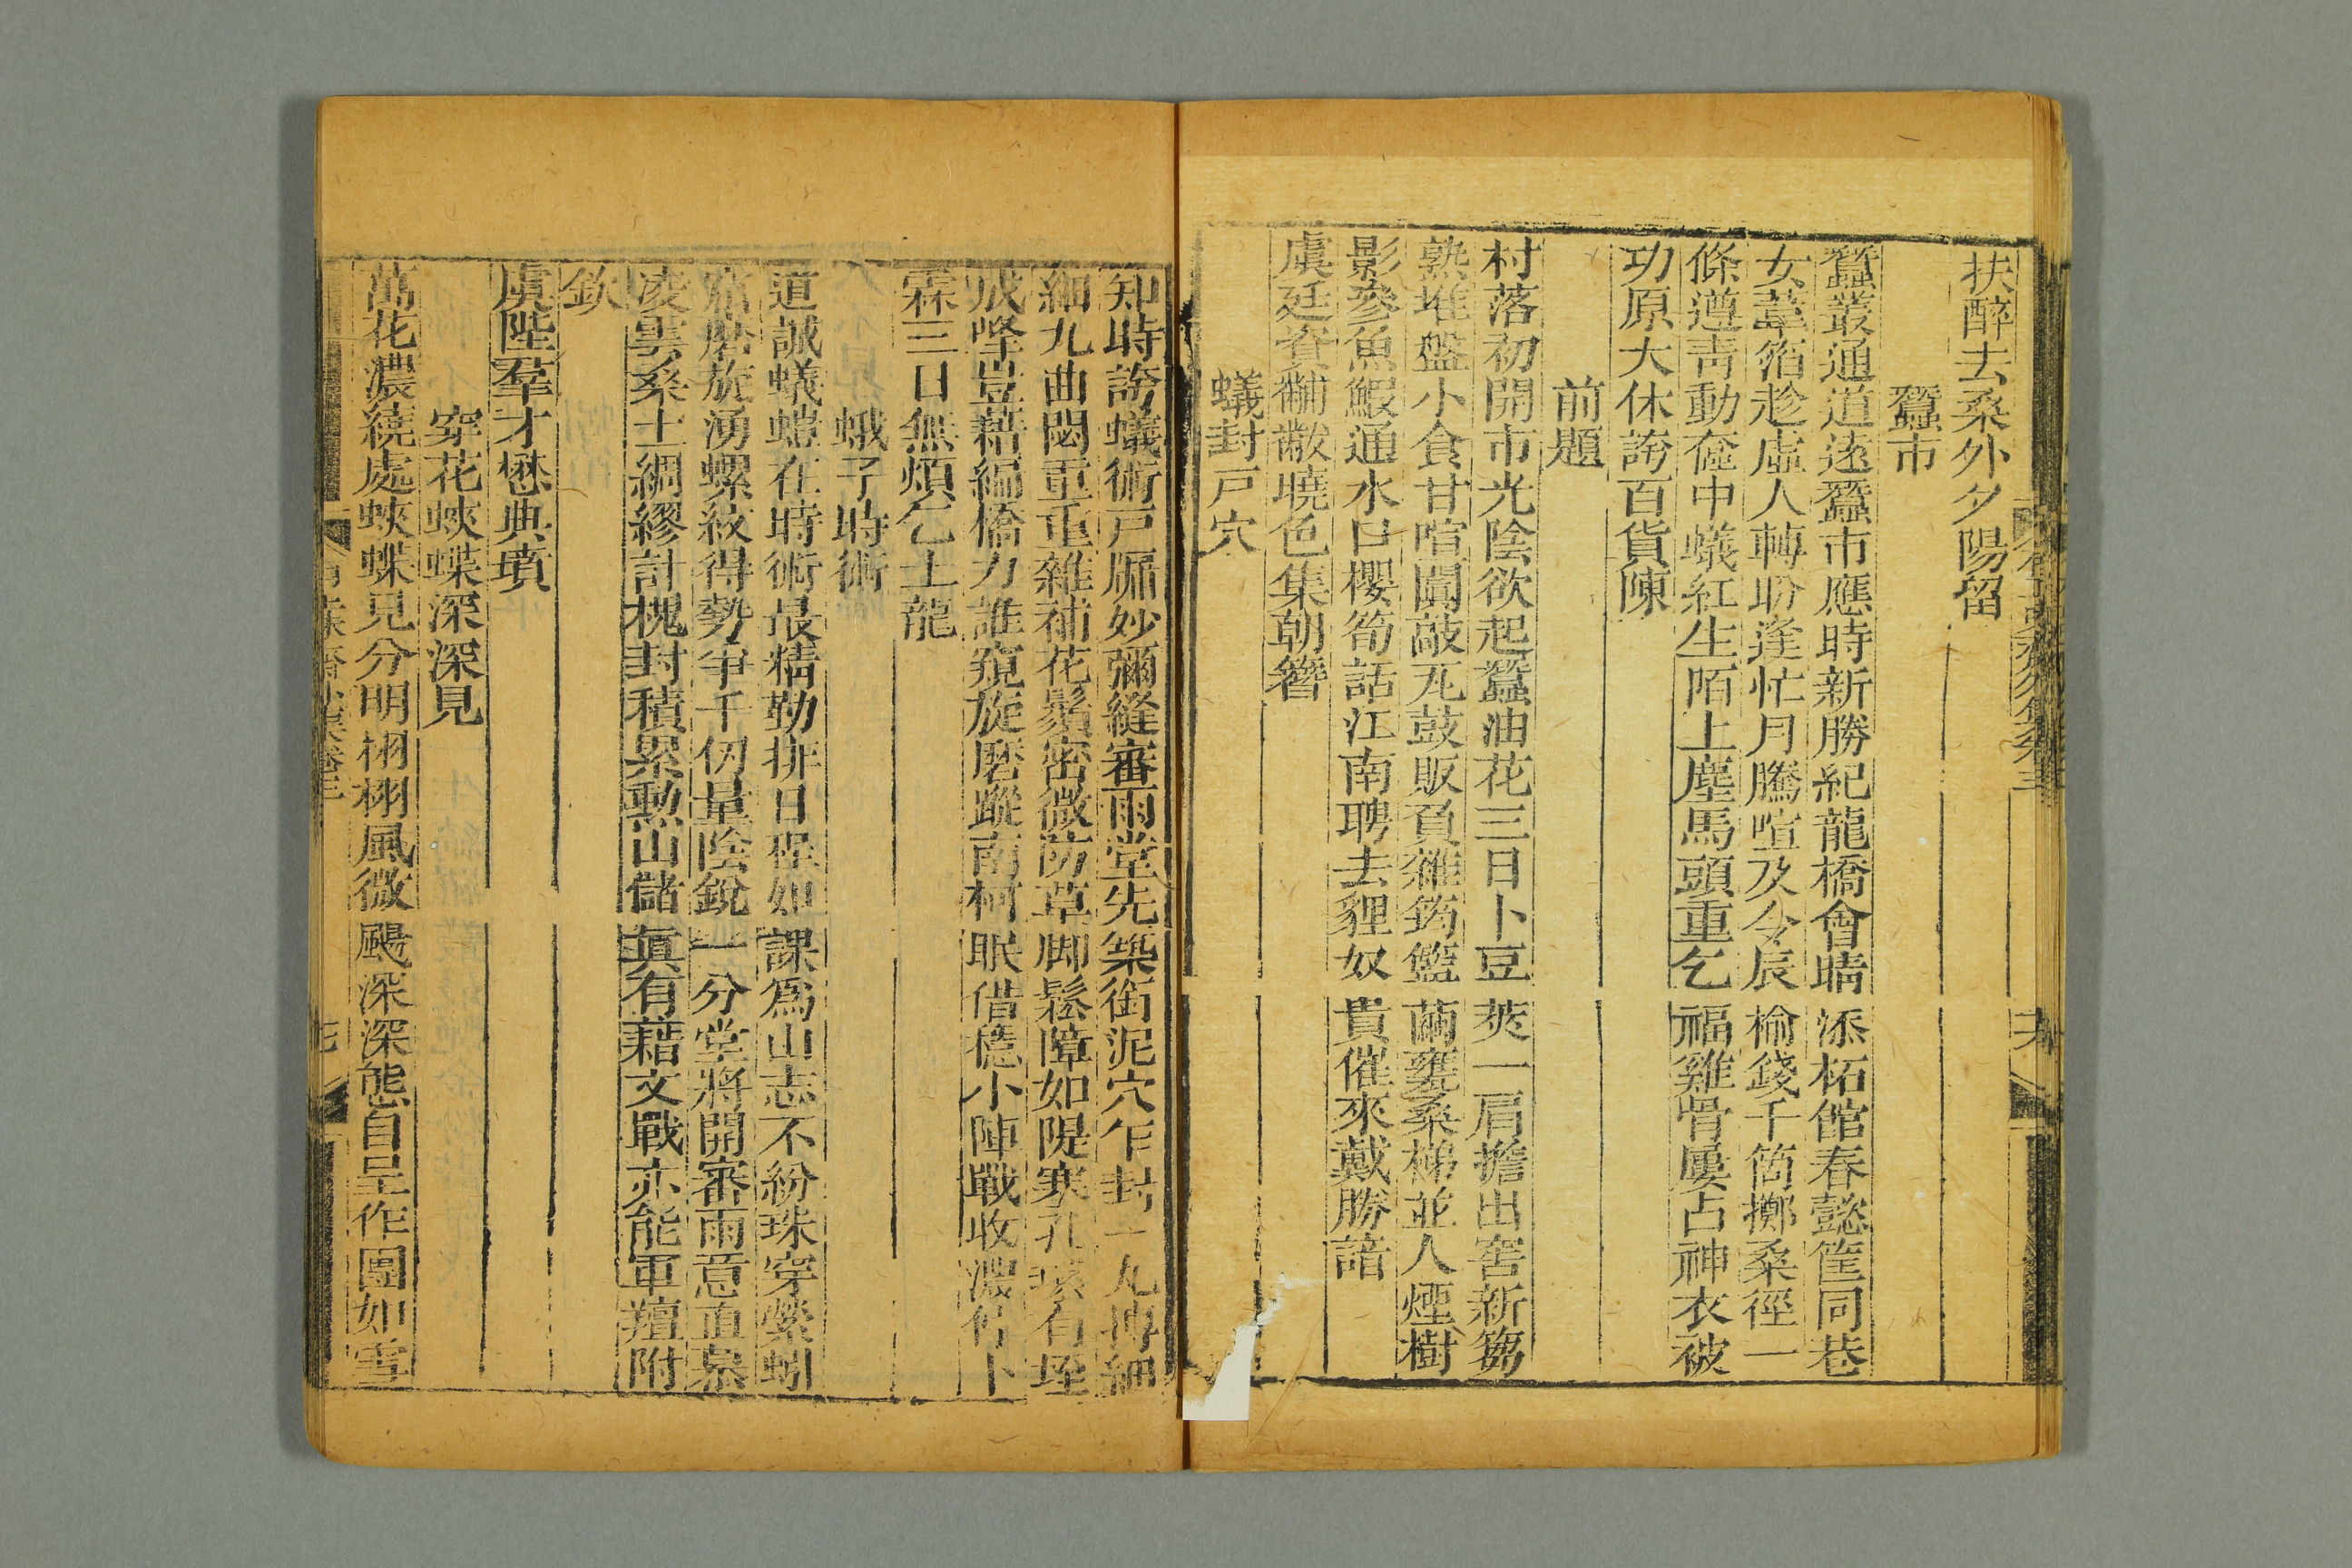 扶醉去桑外夕陽留
蠶市
蠶叢通道遠蠶市應時新勝紀龍橋會晴添柘館春懿筐同巷
女葦箔趁虛人轉盼逢忙月騰喧及令辰榆錢千箇擲桑徑一
條遵靑動奩中蟻紅生陌上塵馬頭重乞福雞骨屢占神衣被
功原大休誇百貨陳
前題
村落初開市光陰欲起蠶油花三日卜豆莢一肩擔出窖新蒭
熟堆盤小食甘喧闐敲瓦鼓販負雜筠籃繭甕桑梯並人煙樹
影參魚鰕通水口櫻筍話江南聘去貍奴貴催來戴勝諳
虞廷資黼黻曉色集朝簪
蟻封戸穴
知時誇蟻術戸牖妙彌縫審雨堂先築銜泥穴乍封一丸摶細
細九曲閟重重雜補花鬚密微防草脚鬆障如隄塞孔壤有垤
成峰豈藉編橋力誰窺旋磨蹤南柯眠借穩小陣戰收濃佔卜
霖三日無煩乞土龍
蛾子時術
道誠蟻螘在時術最精勤排日程如課爲山志不紛珠穿縈蚓
窟磨旋湧螺紋得勢爭千仭量陰銳一分堂將開審雨意直槖
凌雲桑土綢繆計槐封積累勲山儲眞有藉文戰亦能軍羶附
欽
虞陛羣才懋典墳
穿花蛺蝶深深見
萬花濃繞處蛺蝶見分明栩栩風微颺深深態自呈作團如雪